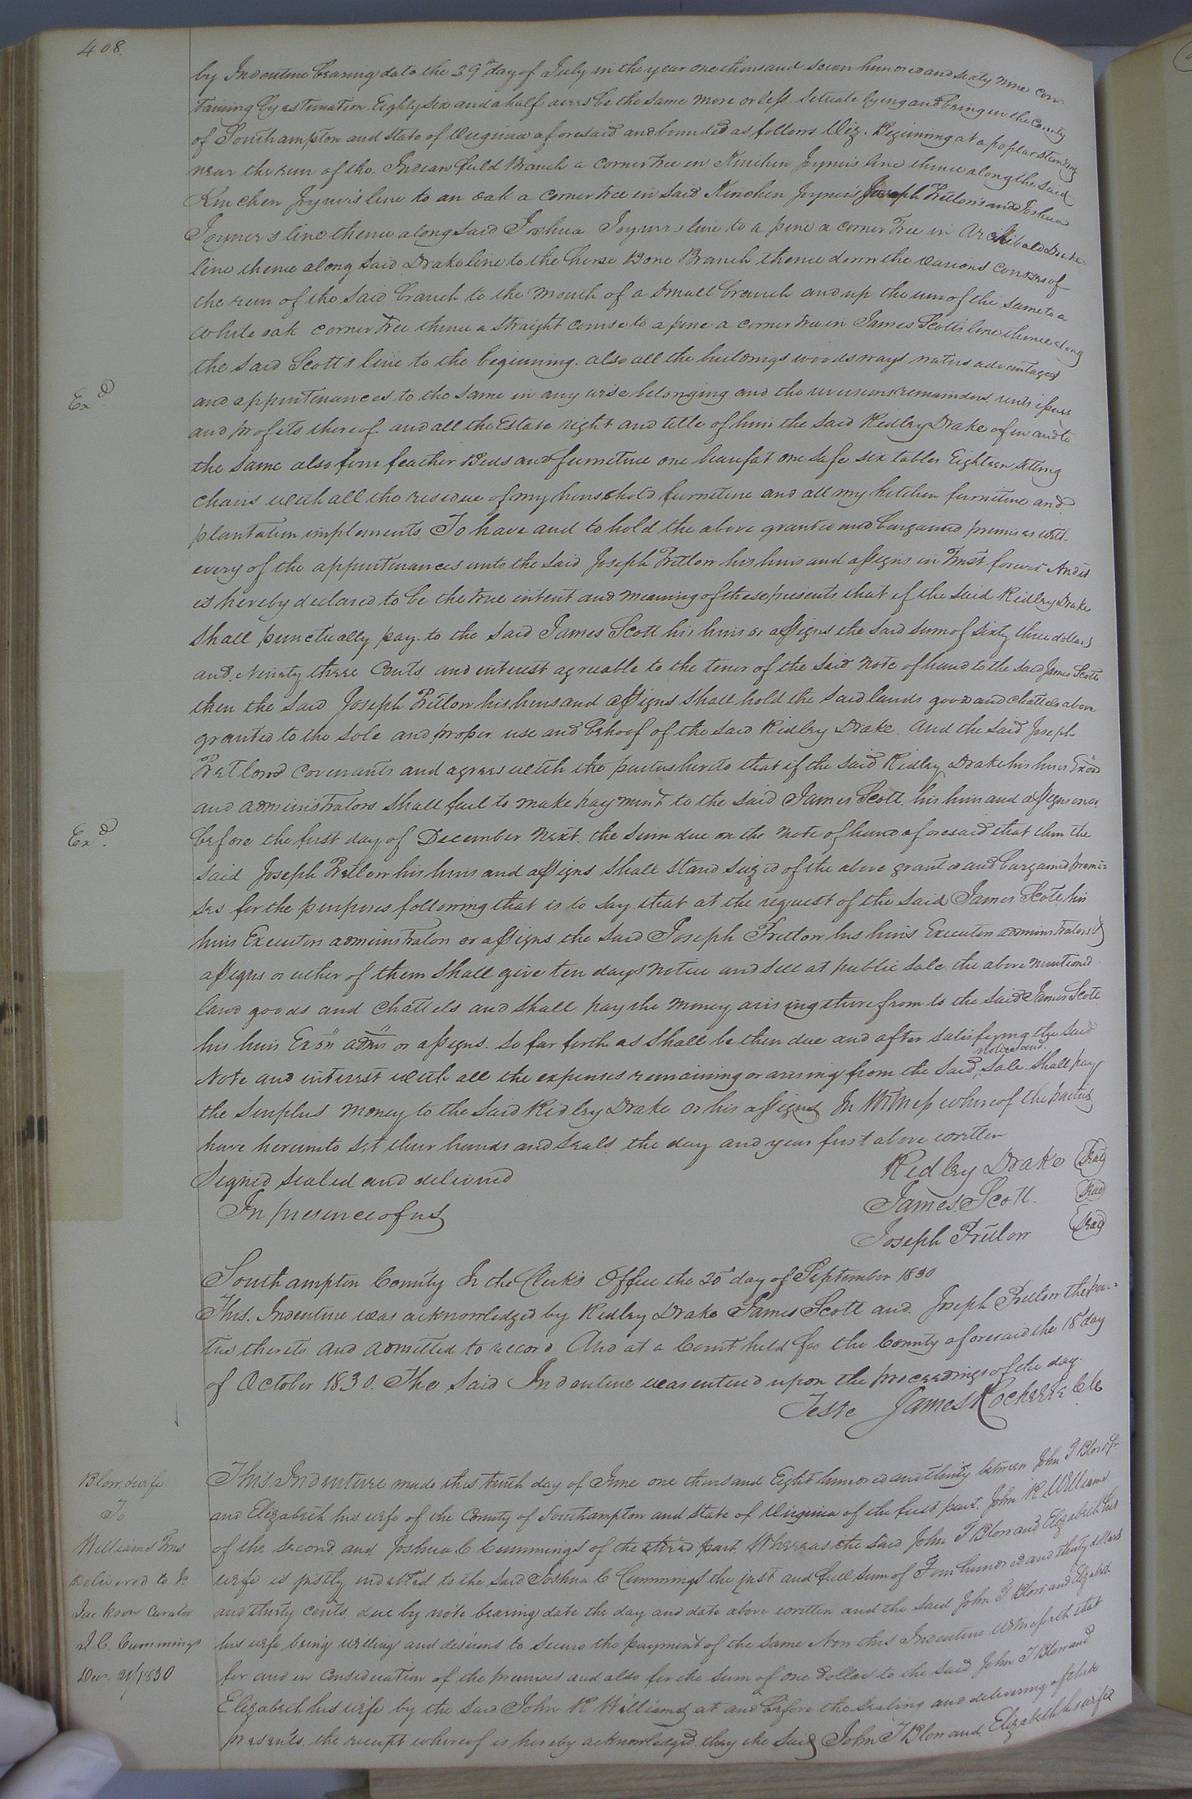 408.
by Indenture bearing date the 29th day of July in the year one thousand seven hundred and sixty nine con-
taining by estimation Eighty six and a half acres be the same more or less Situate lying and being in the County
of Southampton and state of Virginia aforesaid and bounded as follows Viz. Beginning at a poplar standing
near the run of the Indian field Branch a corner tree in Kinchen Joyner's line thence along the said
Kinchen Joyner's line to an oak a corner tree in said Kinchen Joyner's Joseph Pretlow's and Joshua
Joyner's line thence along said Joshua Joyners line to a pine a corner Tree in Archibald Drake
line thence along said Drake line to the horse Bone Branch thence down the various courses of
the run of the said branch to the mouth of a small branch and up the run of the same to a
white oak corner Tree thence a straight course to a pine a corner tree in James Scott's line thence along
the said Scott's line to the beginning. also all the buildings woods ways waters advantages
Exd
and appurtenances to the same in any wise belonging and the reversions remainders rents issues
and profits thereof and all the Estate right and title of him the said Ridley Drake of in and to
the same also four feather Beds and furniture one beaufat one safe six tables Eighteen sitting
chairs with all the residue of my household furniture and all my kitchen furniture and
plantation implements To have and to hold the above granted and bargained premises with
every of the appurtenances unto the said Joseph Pretlow his heirs and assigns in Trust forever And it
is hereby declared to be the true intent and meaning of these presents that if the said Ridley Drake
Shall punctually pay to the said James Scott his heirs or assigns the said sum of sixty three dollars
and Ninety three Cents and interest agreable to the tenor of the said note of hand to the said James Scott
then the said Joseph Pretlow his heirs and assigns shall hold the said lands good and chattels above
granted to the sole and proper use and behoof of the said Ridley Drake. And the said Joseph
Pretlow covenants and agrees with the parties hereto that if the said Ridley Drake his heirs Exors
and administrators shall fail to make payment to the said James Scott his heirs and assigns on or
Exd.
before the first day of December next the sum due on the note of hand aforesaid that then the
said Joseph Pretlow his heirs and assigns shall stand seized of the above granted and bargained premi-
ses for the purposes following that is to say that at the request of the said James Scott his
heirs Executors administrators or assigns the said Joseph Pretlow his heirs Executors administrators &
assigns or either of them shall give ten days notice and sell at public sale the above mentioned
land goods and chattels and shall pay the money arising there from to the said James Scott
his heirs Exors admrs or assigns. so far forth as shall be then due and after satisfying the said
Note and interest with all the expenses remaining or arising from the said notice and Sale shall pay
the surplus money to the said Ridley Drake or his assigns In Witness whereof the parties
have hereunto set their hands and seals the day and year first above written
Signed sealed and delivered Ridley Drake (Seal)
In presence of us James Scott. (Seal)
Joseph Pretlow (Seal)
Southampton County In the Clerk's Office the 20th day of September 1830
This Indenture was acknowledged by Ridley Drake James Scott and Joseph Pretlow the par-
ties thereto and admitted to record And at a Court held for the County aforesaid the 18th day
of October 1830. The said Indenture was entered upon the proceedings of the day.
Teste James Rochelle Clk
Blow & wife
To
Williams Trus
Delivered to
Jackson Curator
J. C. Cummings
Decr. 21/1830
This Indenture made this tenth day of June one thousand Eight hundred and thirty between John T Blow Jr
and Elizabeth his wife of the County of Southampton and state of Virginia of the first part. John R Williams
of the second and Joshua C Cummings of the third part Whereas the said John T Blow and Elizabeth his
wife is justly indebted to the said Joshua C Cummings the just and full sum of Four hundred and thirty dollars
and thirty cents due by note bearing date the day and date above written and the said John T Blow and Elizabeth
his wife being willing and desirous to secure the payment of the same Now this Indenture Witnesseth that
for and in consideration of the premises and also for the sum of one dollar to the said John T Blow and
Elizabeth his wife by the said John R Williams at and before the sealing and delivering of these
presents, the receipt whereof is hereby acknowledged, they the said John T Blow and Elizabeth his wife